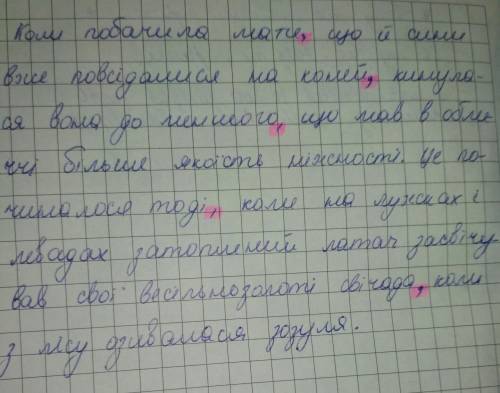 Коли побачила мати, що й сини
вже повсідалися на коней, кинула-
ся вона до меншого, що мав в облич-
чі більше якоїсь ніжності. Це по-
чиналося тоді, коли на лужках і
левадах затоплений латач засвічу
вав свої весільнозолоті свічада, коли
з лісу озивалася зозуля.